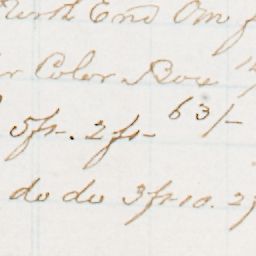 North End Om
Color Box
5fr. 2fr 63/-
do do 3fr10. 2